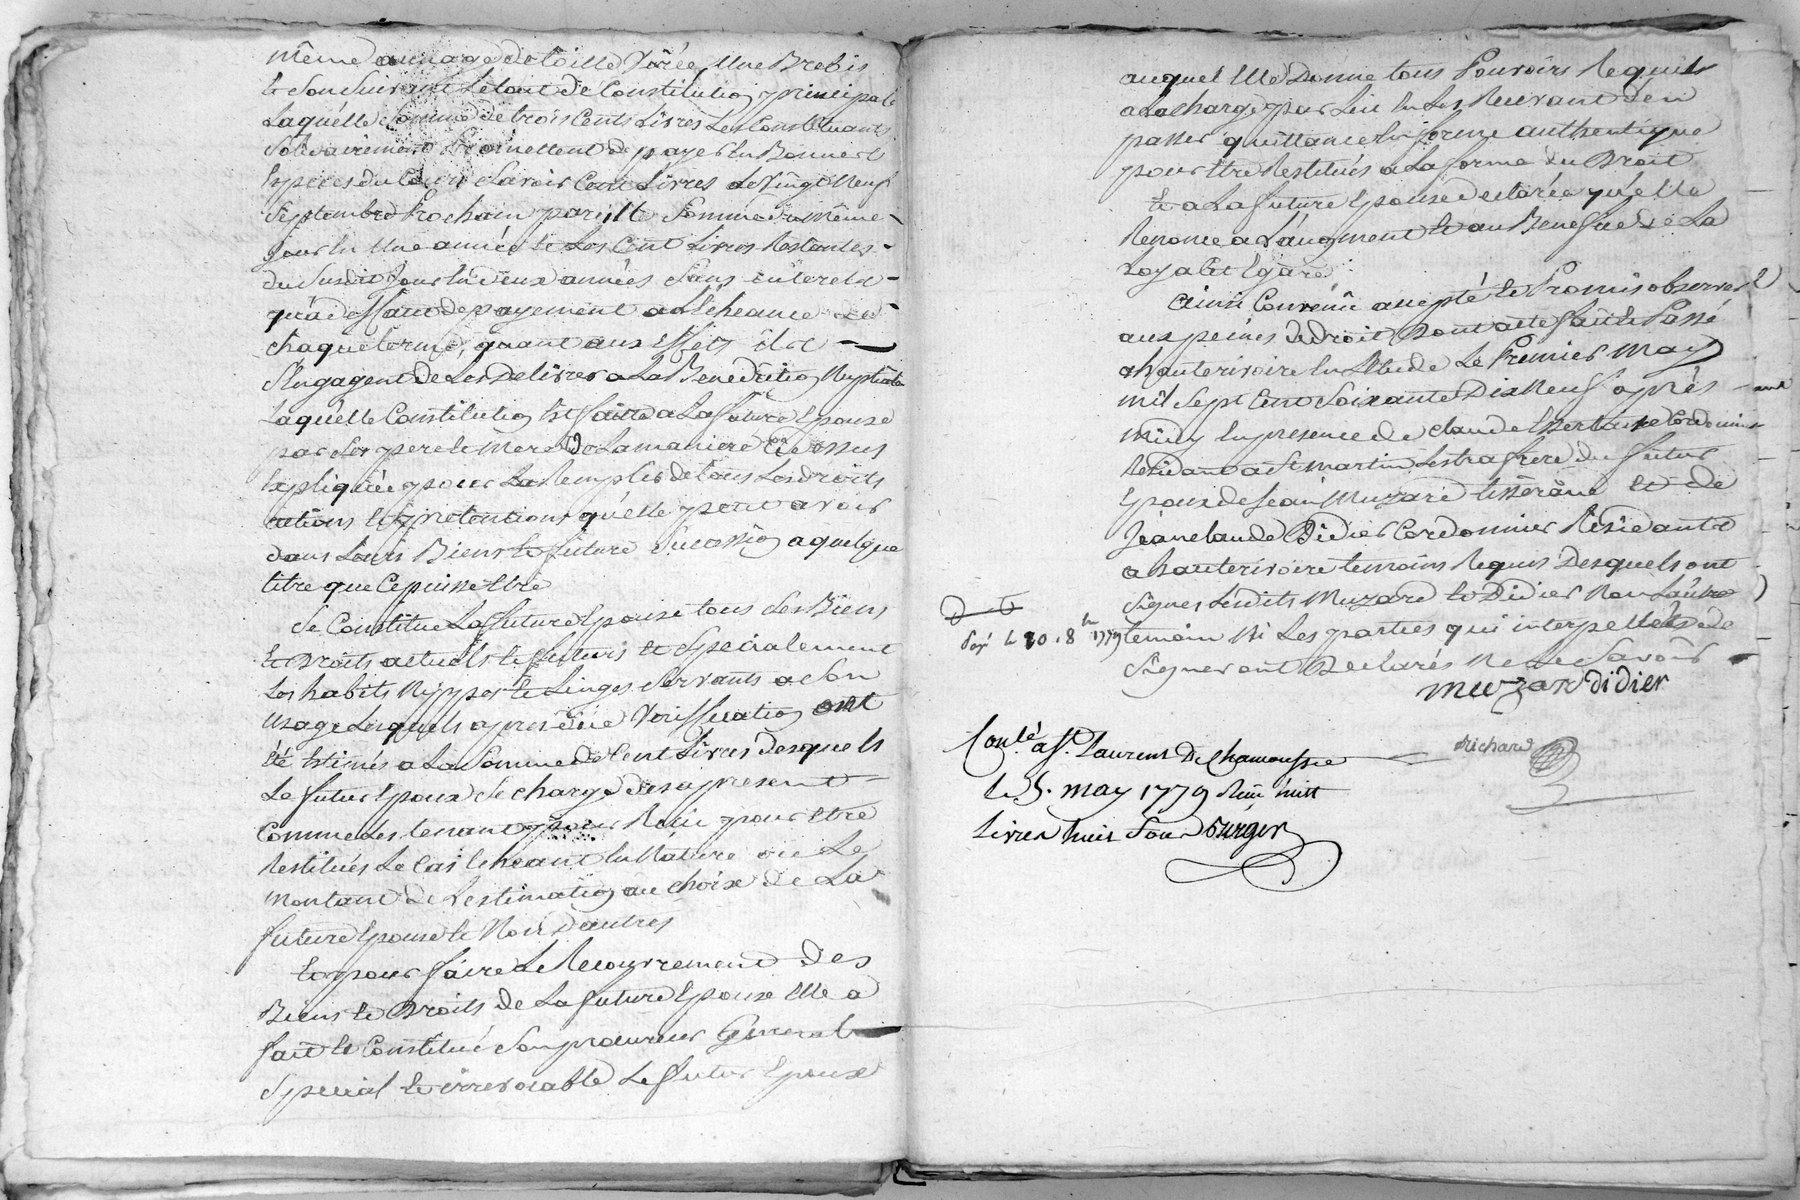 même aunage de toille Virée une Brebis
et son suivant Letout de Constitution principale
Laquelle somme de trois Cents Livres Les Constituants
solidairement promettent de payer en Bonnes
Espèces du Cours savoir Cent Livres Le Vingt Neuf
septembre Prochain pareille somme a même
jour en une année et Les Cent Livres Restantes
du susdit jour en deux années sans interets
qu'a deffaut de payement a L'echeance de
chaque terme, quant aux Effets ils
s'engagent de Les Delivrer a La Benediction Nuptialle
Laquelle Constitution Est faitte a La future Epouse
par ses pere et Mere De La maniere cy dessus
Expliquée pour Luy Remplir de tous Les droits
actions et pretentions qu'elle peut avoir
dans Leurs Biens et future succession a quelque
titre que Ce puisse Etre
se Constitue La future Epouse tous ses Biens
et Droits actuels et futurs et specialement
Les habits Nippes et Linges servants a son
usage Lesquels apres düe Veriffication ont
été Estimés a La somme de Cent Livres desquels
Le futur Epoux se charge des apresent
Comme Les tenant pour Reçu pour Etre
Restitués Le Cas Echeant En Nature ou Le
montant de L'estimation au choix de La
future Epouse et Non d'autres
Et pour faire Le Recouvrement des
Biens et Droits de La future Epouse Elle a
fait et Constitué son procureur General
special et irrevocable Le futur Epoux
auquel Elle Donne tous Pouvoirs Requis
a La charge par Lui En Les Recevant d'en
passer quittance En forme authentique
pour Etre Restitués a La forme du Droit
Et a La future Epouse declarée qu'elle
Renonce a L'augment et au Beneffice de La
Loy a Cet Egard
Ainsi Convenu accepté et Promis observer
aux peines de droit Dont acte fait et Passé
a hauterivoire En L'Etude Le Premier May
mil sept Cent soixante Dix Neuf aprés
midy En presence de Claude Cordonnier
Residant a St martin Lestra frere du futur
Epoux de Jean Muzard tisserand et de
Jean Claude Didier Cordonnier Residants
a hauterivoire temoins Requis Desquels ont
signés Lesdits Muzard et Didier Non L'autre
temoin Ni Les parties qui interpellées de
signer ont Declarés Ne Le savoir
Exp. le 20. 8bre 1779
muzard didier
Richard
Conlé a St. Laurent De Chamoussie
le 5. may 1779 Reçu huit
Livres huit sous Durger